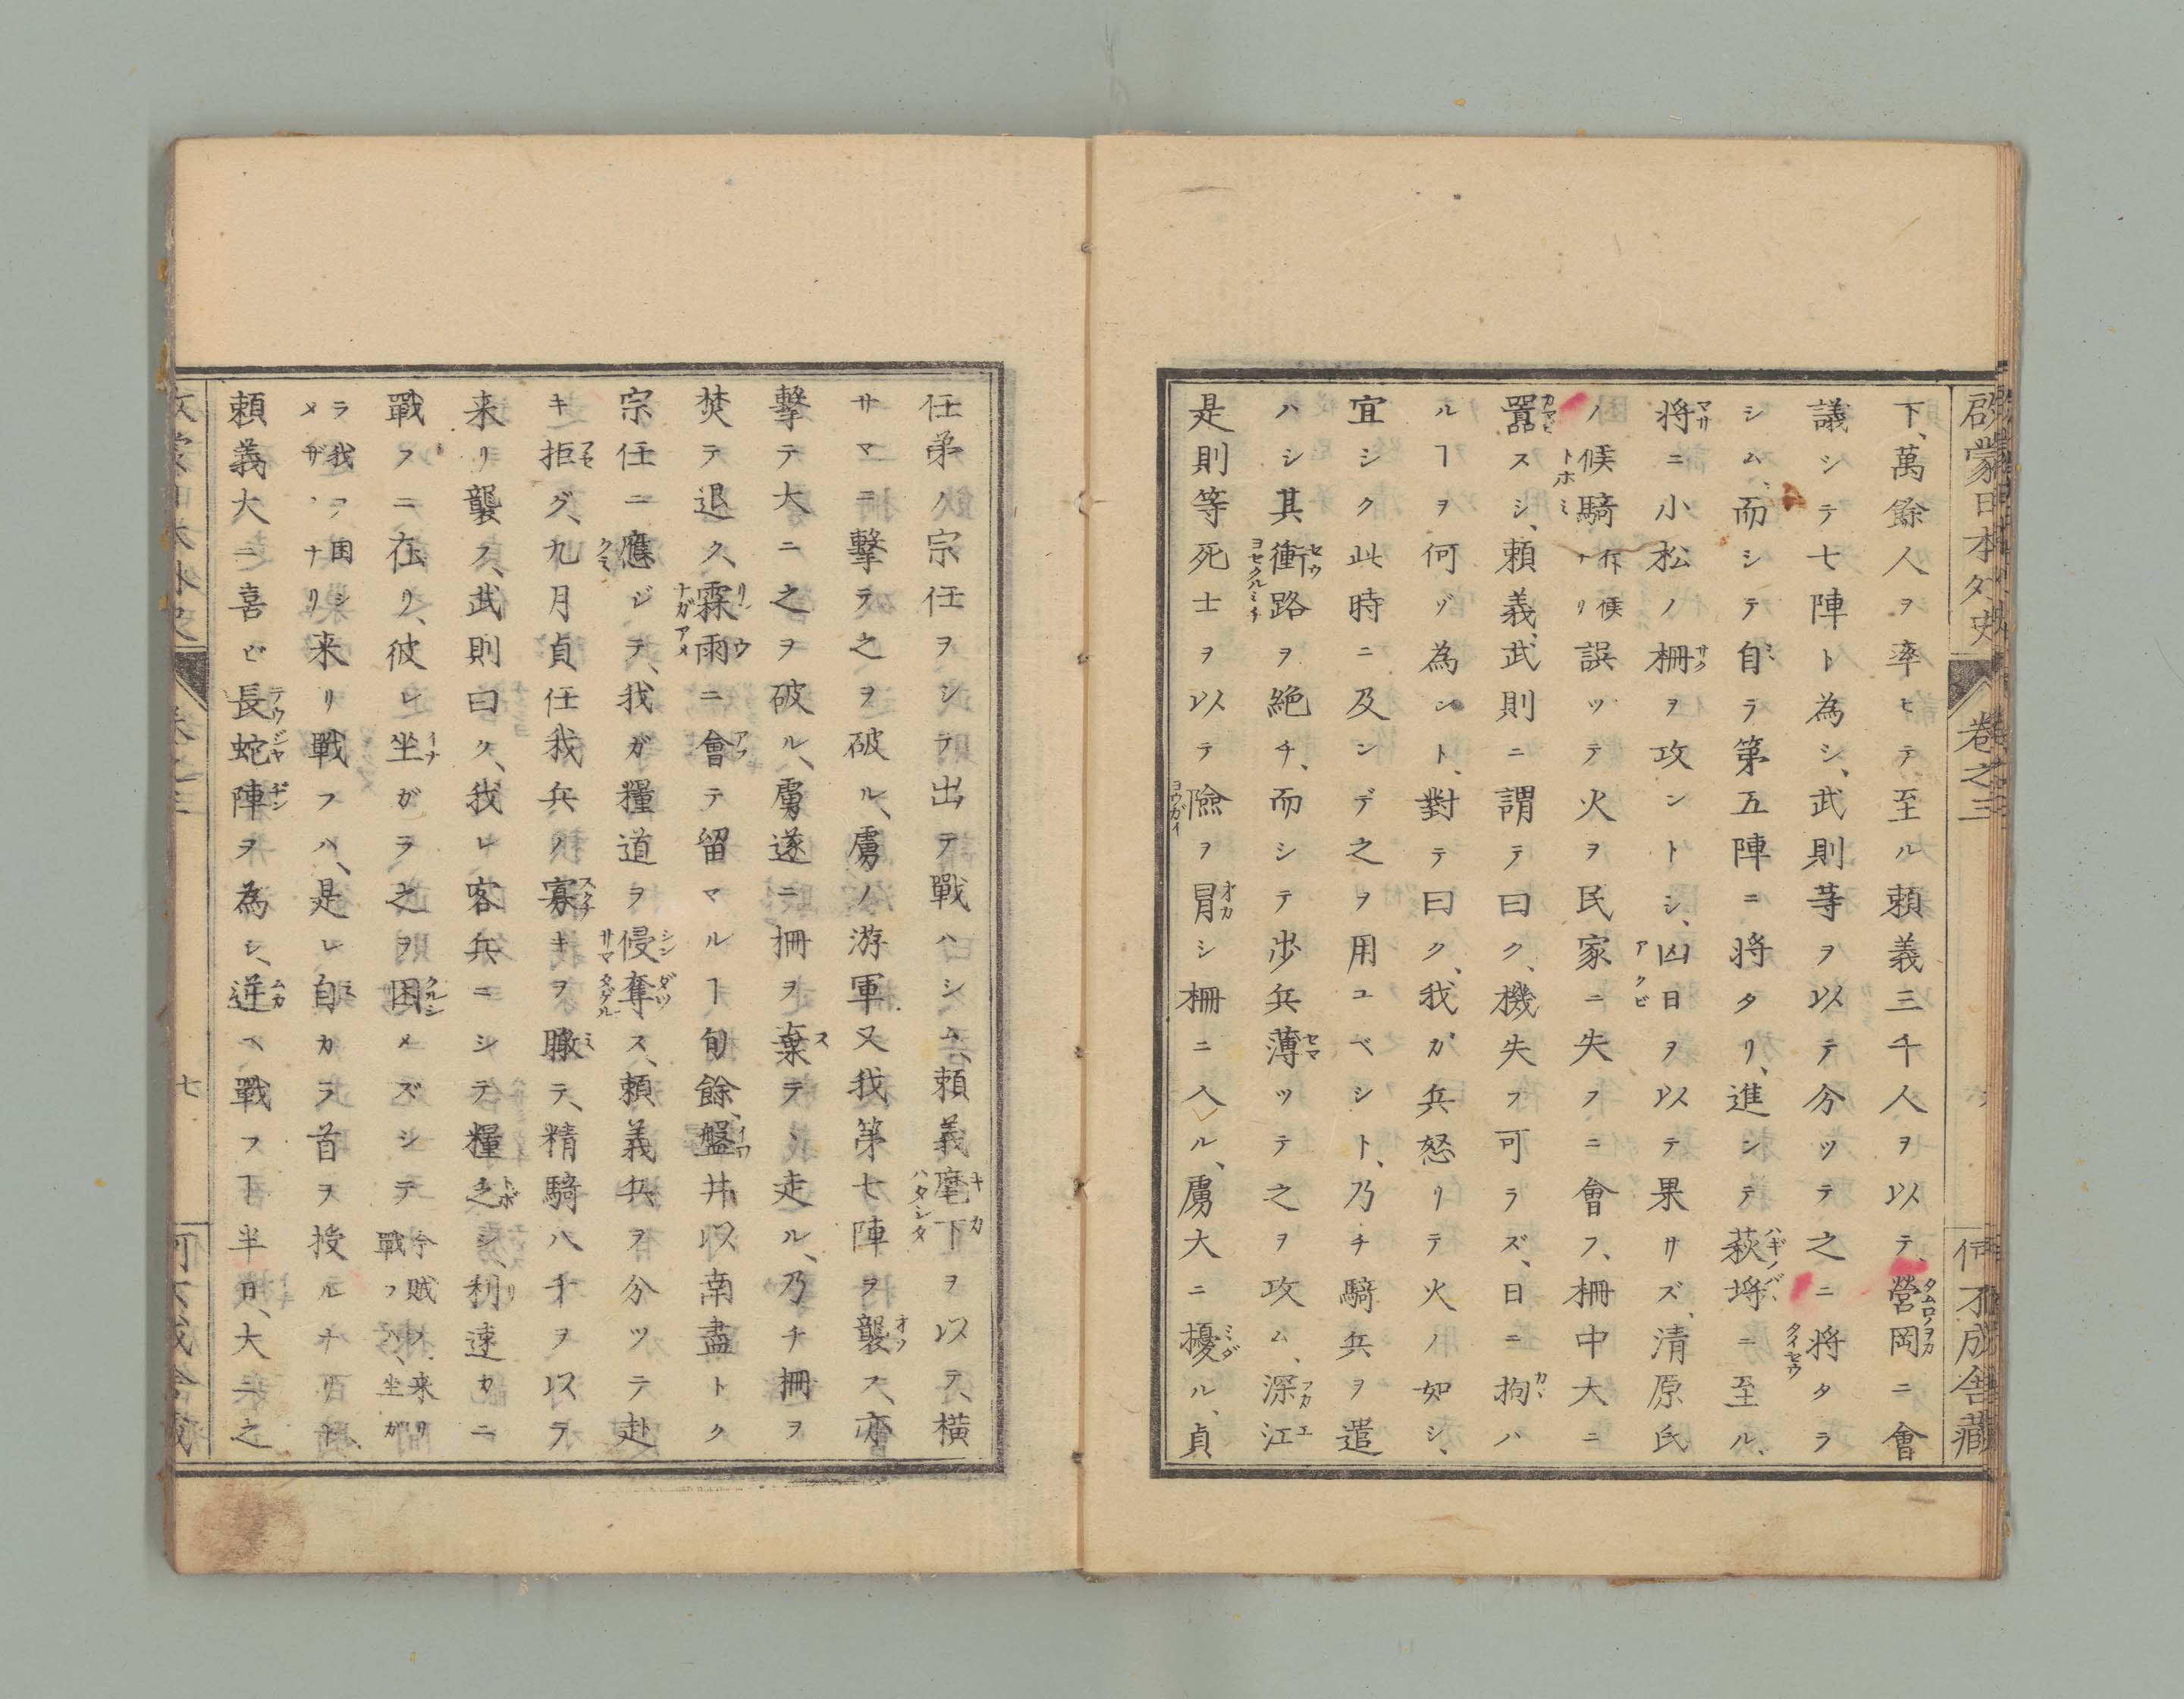 啓蒙日本外史 巻之三 何不成舎蔵
下、萬餘人ヲ率ヒテ至ル頼義三千人ヲ以テ、營岡ニ會
議シテ七陣ト為シ、武則等ヲ以テ分ツテ之ニ将タラ
シム、而シテ自ラ第五陣ニ将タリ、進ンテ萩埓ニ至ル、
将ニ小松ノ柵ヲ攻ントシ、凶日ヲ以テ果サズ、清原氏
ノ候騎誤ツテ火ヲ民家ニ失フニ會フ、柵中大ニ
囂スシ、頼義、武則ニ謂テ曰ク、機失フ可ラズ、日ニ拘ハ
ルヿヲ何ゾ為ント、對テ曰ク、我カ兵怒リテ火ノ如シ、
宜シク此時ニ及ンデ之ヲ用ユベシト、乃チ騎兵ヲ遣
ハシ其衝路ヲ絶チ、而シテ歩兵薄ツテ之ヲ攻ム、深江
是則等死士ヲ以テ險ヲ冒シ柵ニ入ル、虜大ニ擾ル、貞
任弟ノ宗任ヲシテ出テ戰ハシム、頼義麾下ヲ以テ、横
サマニ擊テ之ヲ破ル、虜ノ游軍又我第七陣ヲ襲ス、亦
擊テ大ニ之ヲ破ル、虜遂ニ柵ヲ棄テヽ走ル、乃チ柵ヲ
焚テ退ク、霖雨ニ會テ留マルヿ旬餘、盤井以南盡トク
宗任ニ應ジテ、我ガ糧道ヲ侵奪ス、頼義兵ヲ分ツテ赴
キ拒グ、九月貞任我兵ノ寡キヲ瞰テ、精騎八千ヲ以テ
来リ襲ス、武則曰ク、我レ客兵ニシテ糧乏シ、利速カニ
戰フニ在リ、彼レ坐ガヲ之ヲ困メズシテ 今賊ノ来リ戰フハ、坐ガ
ラ我ヲ困シメザルナリ 来リ戰フハ、是レ自カラ首ヲ授ルナリト、
頼義大ニ喜ビ長蛇陣ヲ為シ、逆ヘ戰フヿ半日、大ニ之
七